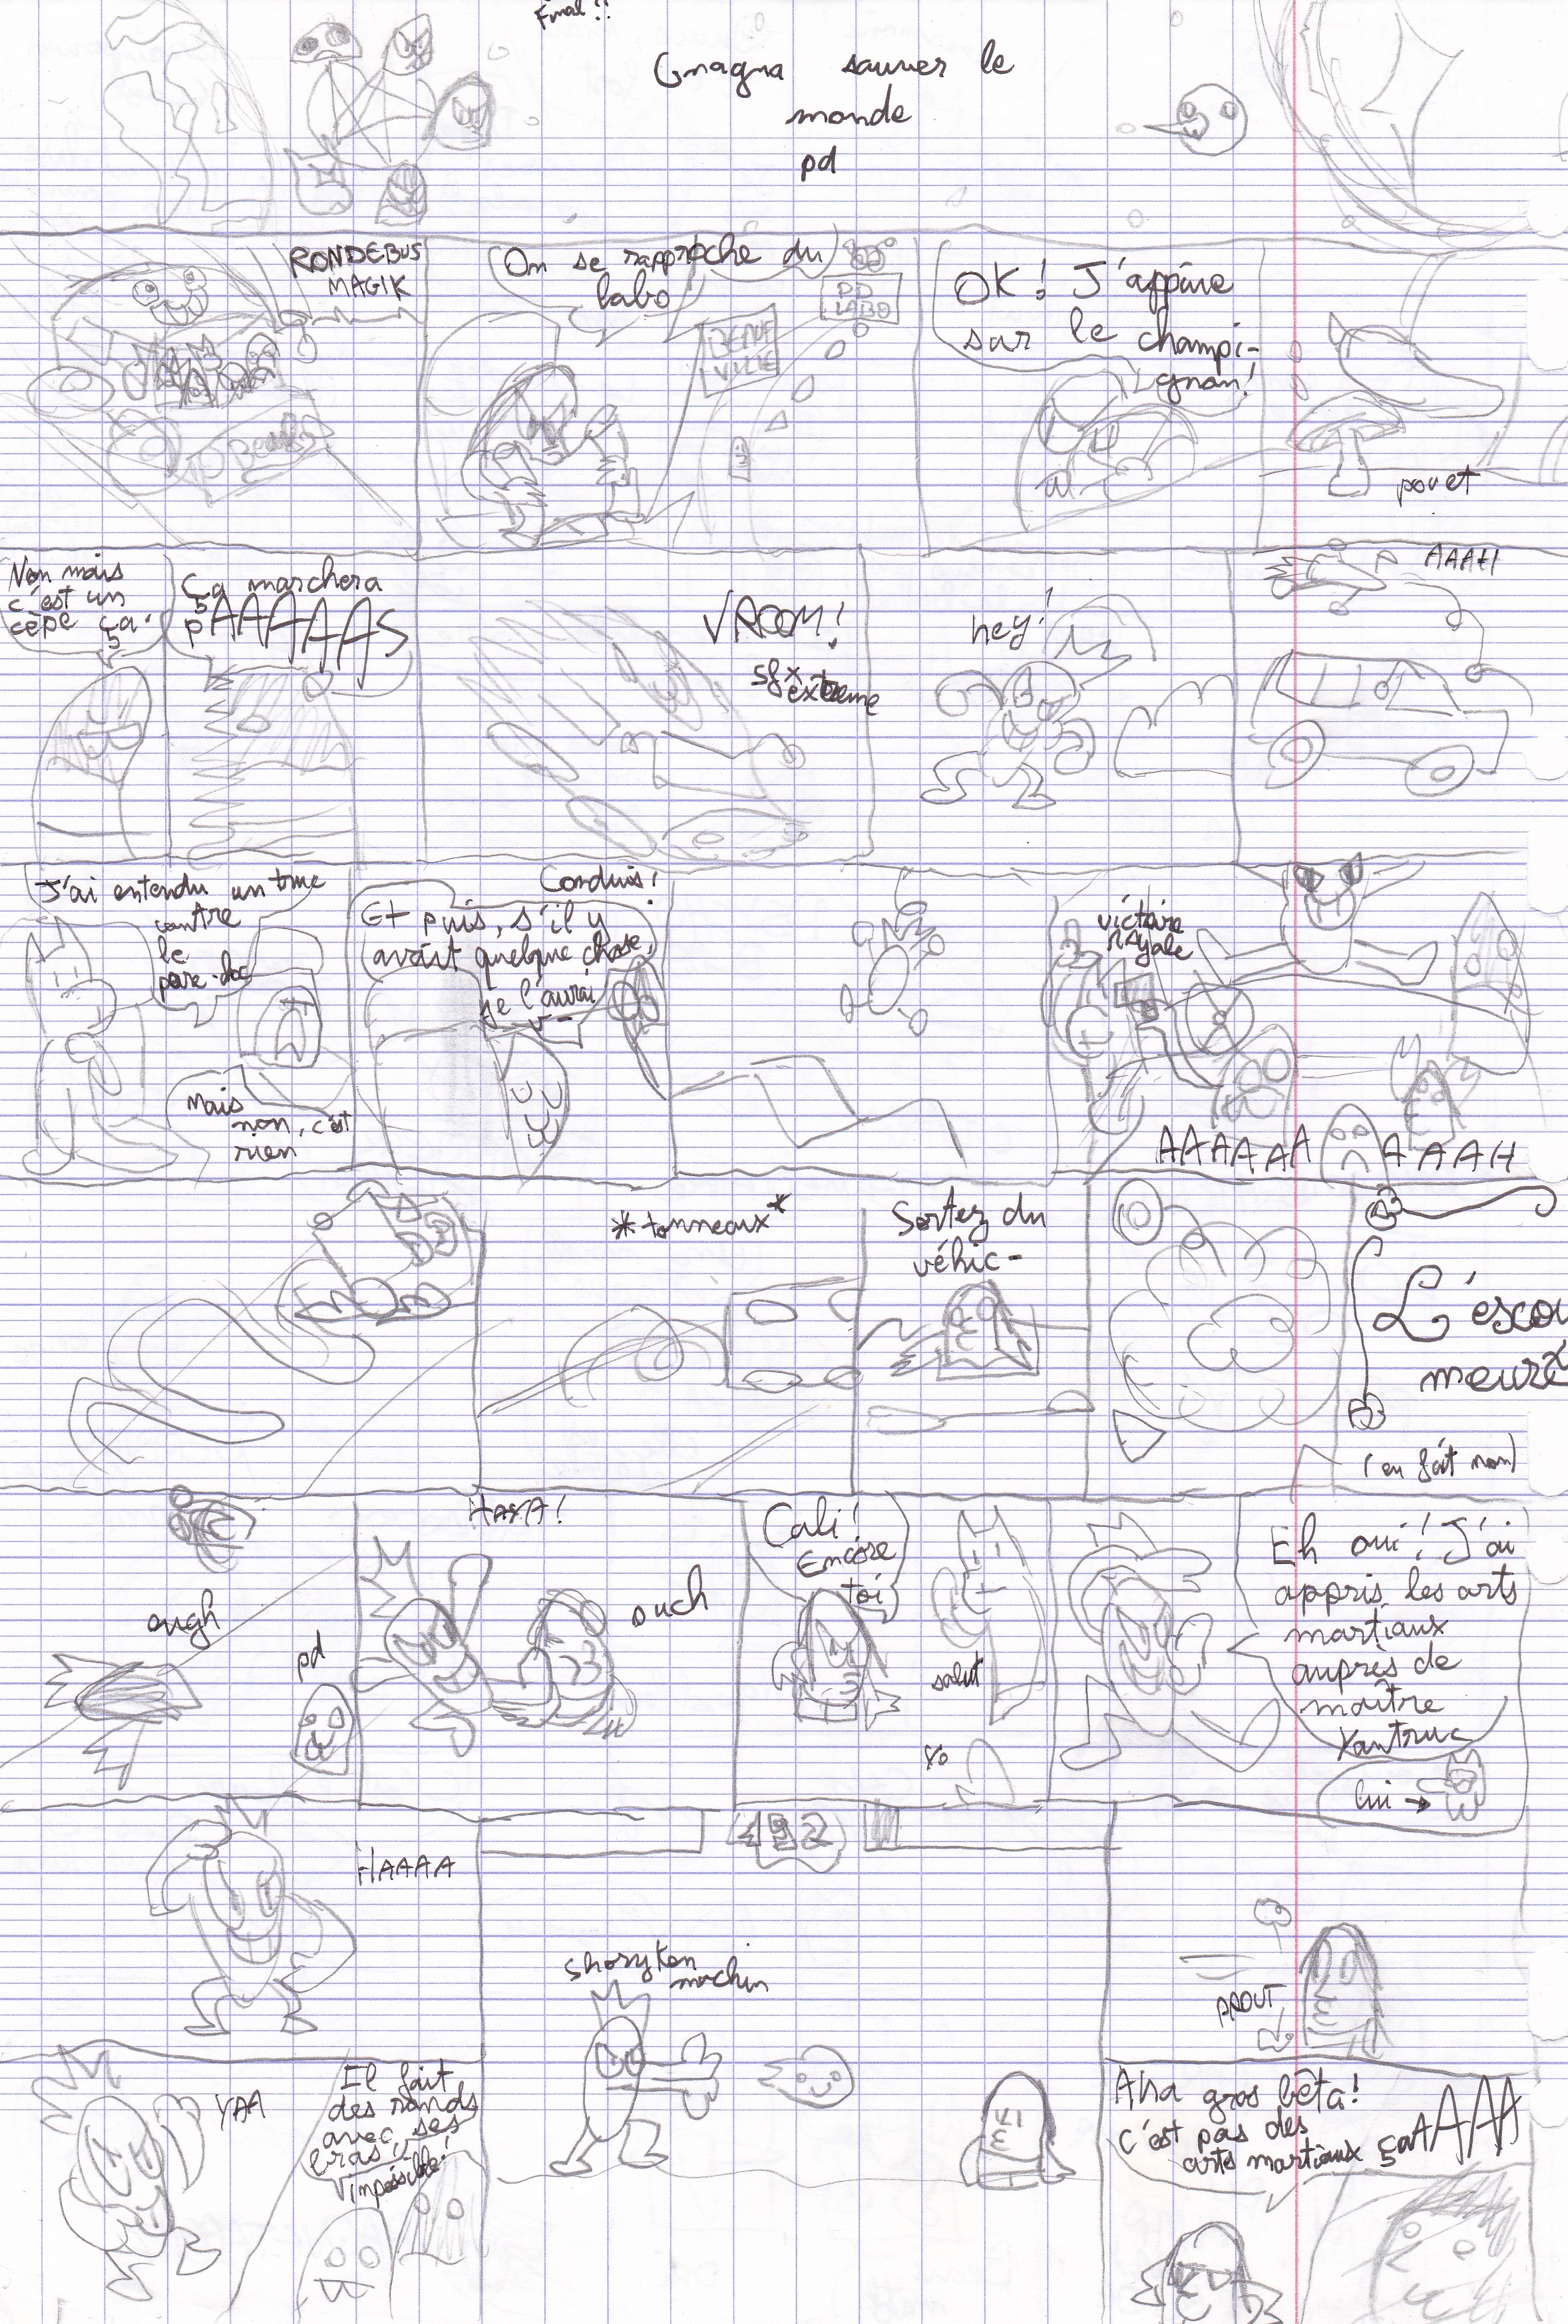 Final !!
Gnagna sauver le
monde
pd
RONDEBUS
MAGIK
On se rapproche du
labo
BEAUF
VILLE
PD
LABO
OK! J'appuie
sur le champi-
gnon!
pouet
Non mais
c'est un
cèpe ça.
Ça marchera
pAAAAAAS
VROOM!
sfx
extreme
hey!
AAAH
J'ai entendu un truc
contre
le
pare-choc
Mais
non, c'est
rien
Conduis!
Et puis, s'il y
avait quelque chose,
je l'aurai
v-
victoire
royale
AAAAAA AAAAH
*tonneaux*
Sortez du
véhic-
L'escou
meurt
(en fait non)
ough
pd
HAHA!
ouch
Cali!
Encore
toi
salut
Yo
Eh oui! J'ai
appris les arts
martiaux
auprès de
maître
Yantruc
lui →
HAAAA
shoryken
machin
PROUT
YAA
Il fait
des ronds
avec ses
bras!!
impossible!
Aha gros bêta!
C'est pas des
arts martiaux çaAAAA